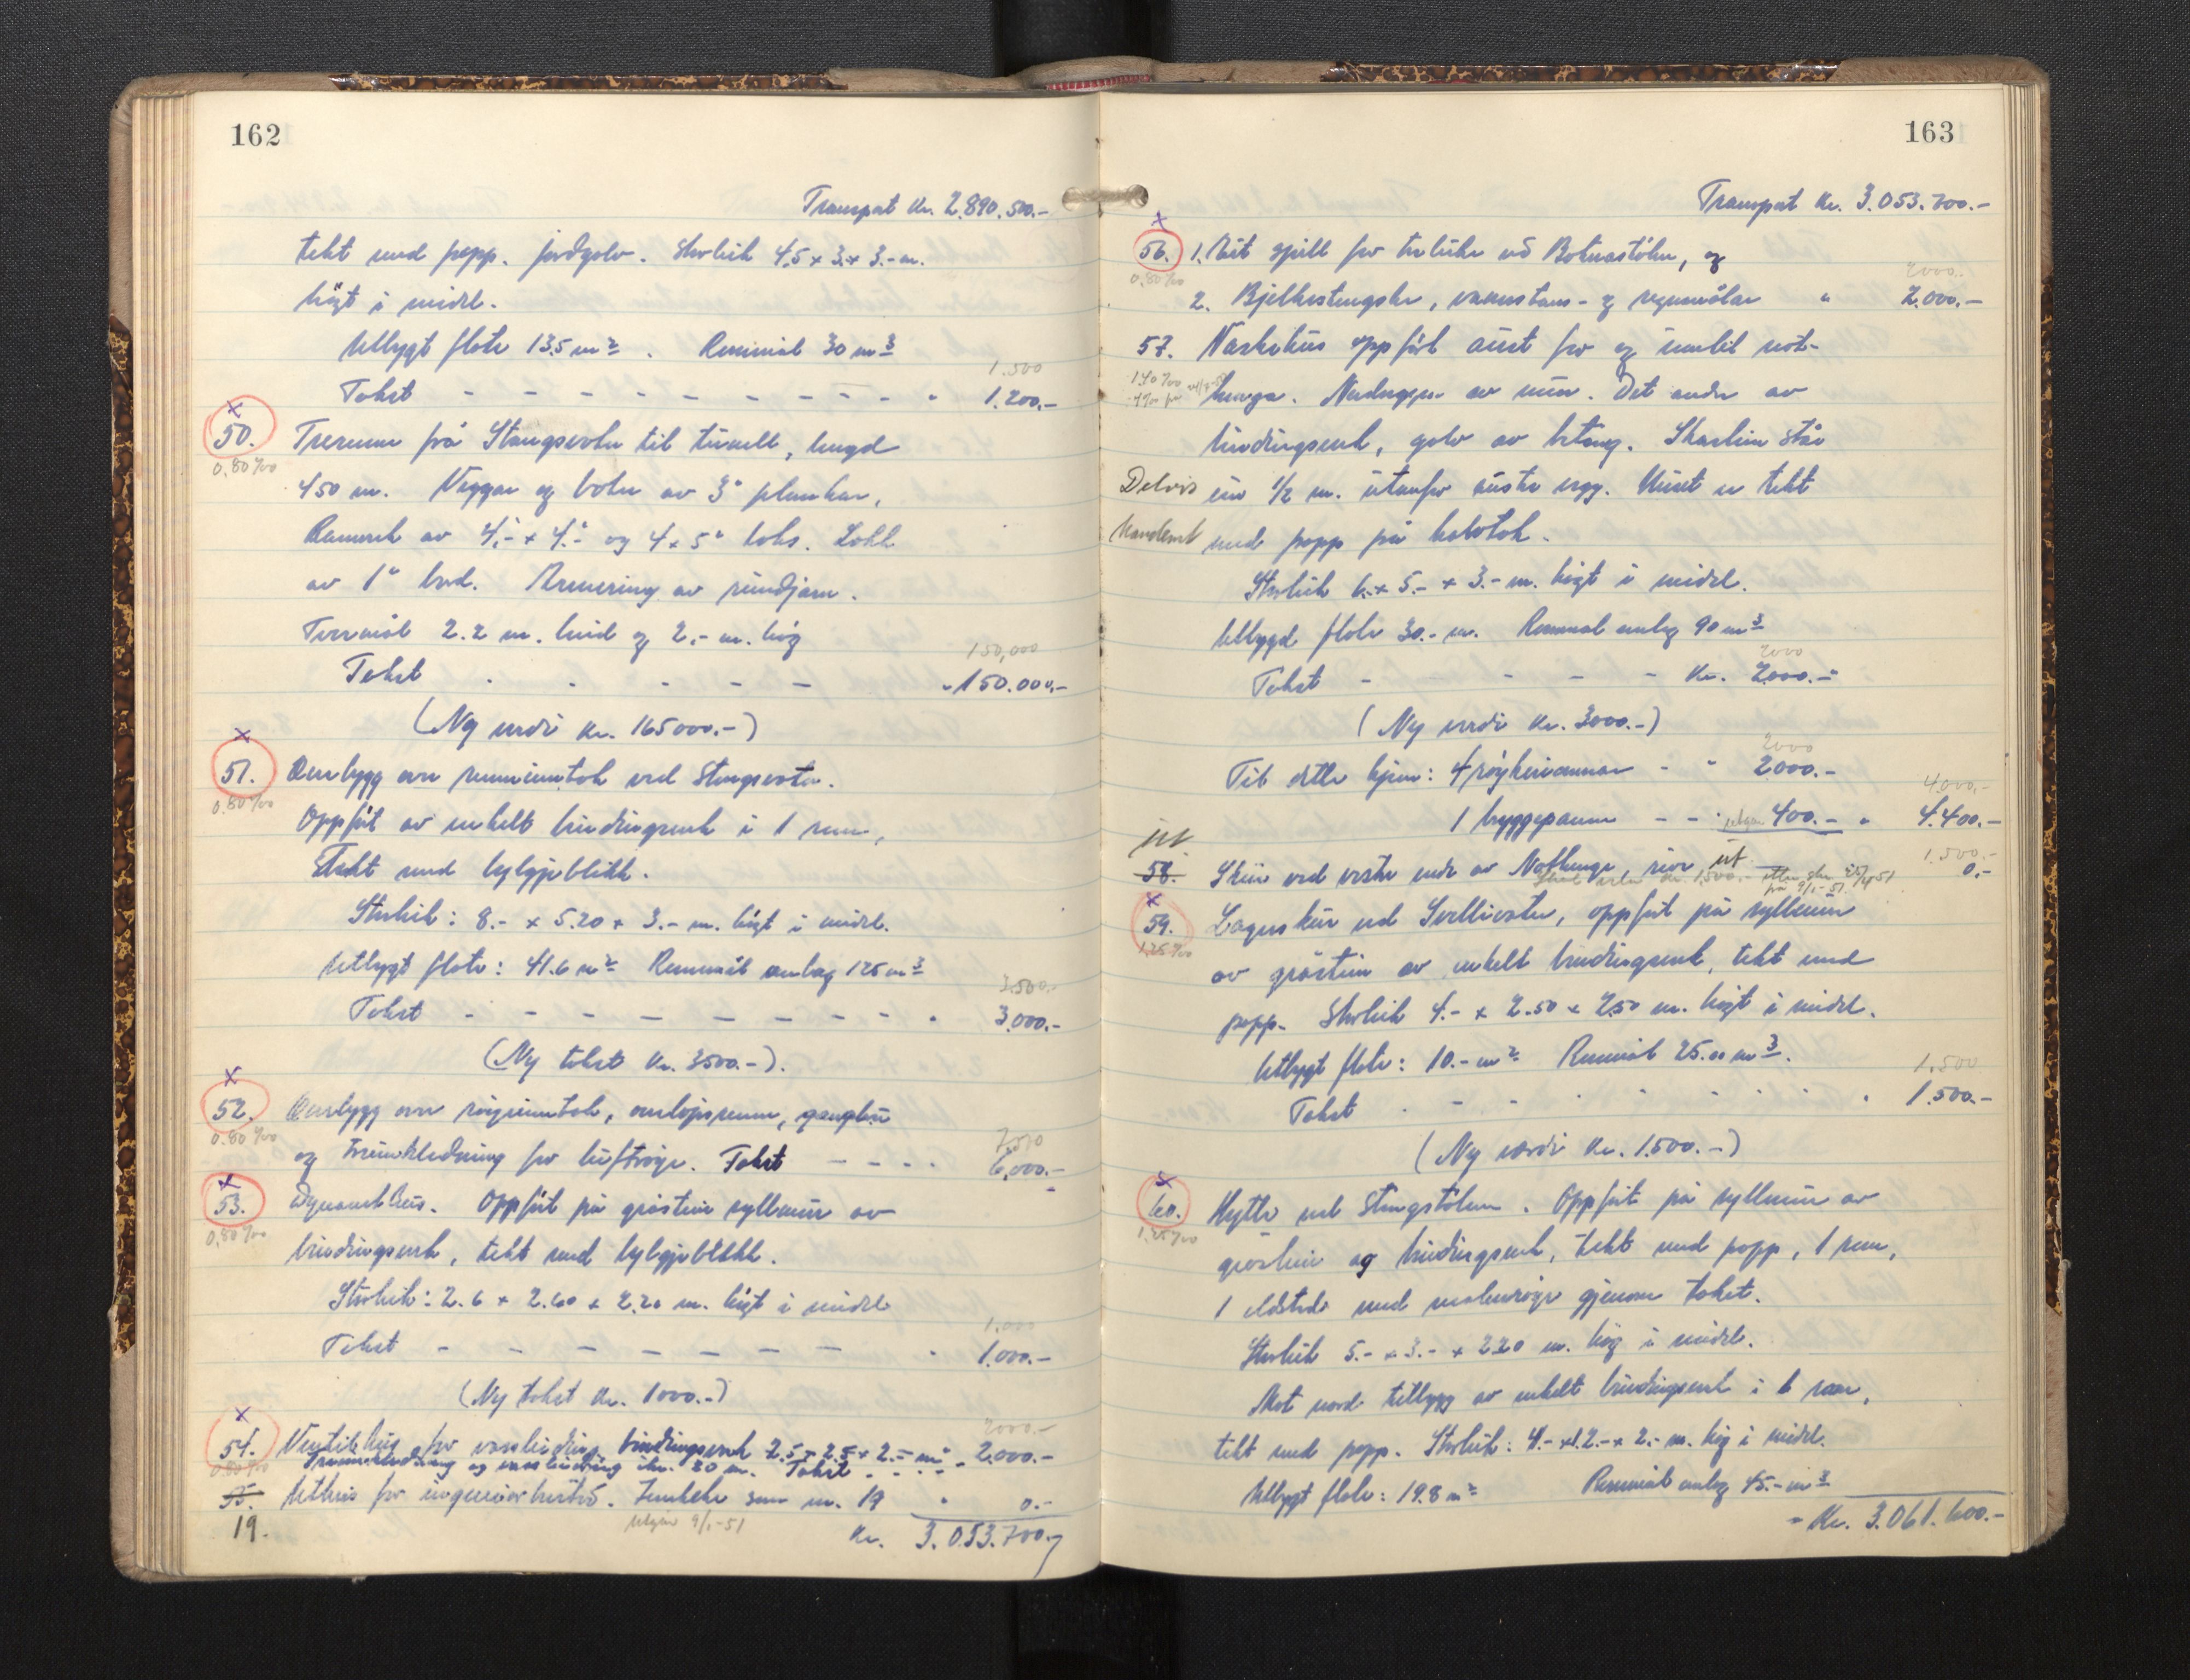 162
Transport kr. 2.890.500.-
tekt med papp. jordgolv. Storleik 4,5 x 3.- x 3.- m.
høgt i midel.
Utbygt flate 13,5 m². Rummål 30 m³
1.500
Takst - - - - - - - - - - " 1.200.-
x
50. Trerenne frå Stongsvatn til tunell, lengd
0.80 ‰
450 m. Veggar og botn av 3" plankar,
Ramverk av 4.- x 4.- og 4 x 5" toks. Lokk
av 1" bord. Armering av rundjarn.
Tverrmål 2.2 m. breid og 2.- m. høg
150,000
Takst - - - - - " 150.000.-
(Ny verdi kr. 165000.-)
x
51. Overbygg over renneinntak ved Stongsvatn.
0.80 ‰
Oppført av enkelt bindingsverk i 1 rom,
Tekt med bylgjeblikk.
Storleik: 8.- x 5.20 x 3.- m. høgt i midel.
Utbygt flate: 41.6 m² Rummål omlag 125 m³
3.500.-
Takst - - - - - - - - - " 3.000.-
(Ny takst kr. 3500.-).
x
52. Overbygg over røyrinntak, omløpsrenne,
0.80 ‰
7.500
og treinnkledning for luftrøyr. Takst - - - - 6,000.-
x
53. Dynamithus. Oppført på gråstein syllmur av
0,80 ‰
bindingsverk, tekt med bylgjeblikk.
Storleik: 2.6 x 2.60 x 2.20 m. høgt i midel
1.000
Takst - - - - - - - " 1.000.-
(Ny takst kr. 1000.-)
x
2000.-
54. Ventilhus for vassleidning bindingsverk 2.5 x 2.5 x 2.- m. - 2.000.-
0.80 ‰
og vassleidning 80 m. Takst - - - -
55. Uthus for ingeniørbustad. Innteke som nr. 19 " 0.-
19.
Utgår 9/1-51
Kr. 3.053.700.-
163
Transport kr. 3.053.700.-
x
56. 1. Eit spill for treluke ved Botnastølen, og
0.80 ‰
2000.-
2. Bjelkestengsler, vannstans- og regnmålar " 2.000.-
57. Naskehus oppført aust for og inntil not-
1.40 ‰
henga. Nedregger av mur. Det andre av
bindingsverk, golv av betong. Skorstein står
Delvis
ein 1/2 m. utanfor austre vegg. Huset er tekt
Kondemt
med papp på halvtak.
Storleik 6.- x 5.- x 3.- m. høgt i midel.
Utbygd flate 30.- m. Rummål omlag 90 m³
2000
Takst - - - - - kr. 2000.-
(Ny verdi kr. 3000.-)
2000
Til dette kjem: 4 - " 2000.-
4.000.-
1 bryggepanne - - " 400.- " 4.400.-
ut
1.500.-
58. Skur ved vestre ende av Nothenga, rive ut 0.-
1.500.- 25/4 51
på 9/1-51
x
59. Lagerskur ved Svellivatn, oppført på syllmur
1.25 ‰
av gråstein av enkelt bindingsverk, tekt med
papp. Storleik 4.- x 2.50 x 2.50 m. høgt i midel.
Utbygt flate: 10.- m² Rummål 25.00 m³.
1.500
Takst . - - . . . . . . " 1.500.-
(Ny verdi kr. 1.500.-)
x
60. Hytte ved Stongstølen. Oppført på syllmur av
1.25 ‰
gråstein og bindingsverk, tekt med papp, 1 rom,
1 eldstad med malmrøyr gjenom taket.
Storleik 5.- x 3.- x 2.20 m. høg i midel.
Mot nord tilbygg av enkelt bindingsverk i 1 rom,
tekt med papp. Storleik: 4.- x 1.2.- x 2.- m. høg i midel.
Utbygt flate: 19.8 m² Rummål omlag 45.- m³
Kr. 3.061.600.-